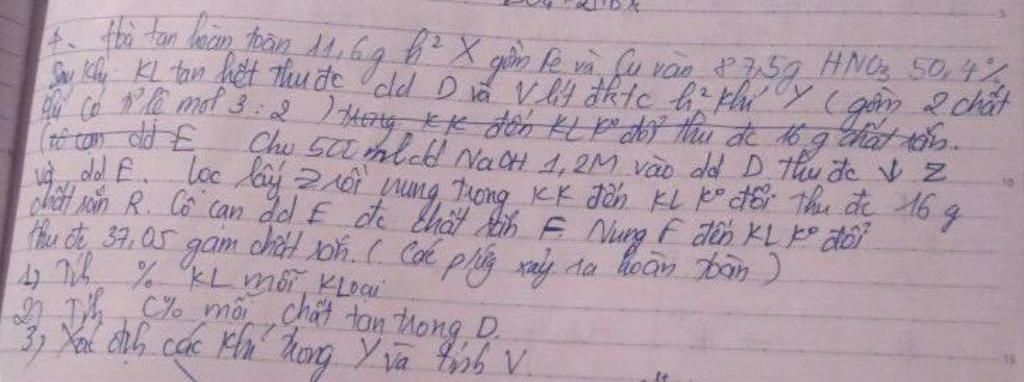 4. Hoà tan hoàn toàn 11,6g h² X gồm Fe và Cu vào 87,5g HNO3 50,4%
Sau khi KL tan hết thu đc dd D và V lít đktc h² khí Y (gồm 2 chất
khí có tỉ lệ mol 3:2) trong KK đến KL k° đổi thu đc 16 g chất rắn.
(cô cạn dd E Cho 500 ml dd NaOH 1,2M vào dd D thu đc ↓ Z
và dd E. Lọc lấy Z rồi nung trong KK đến KL k° đổi thu đc 16 g
chất rắn R. Cô cạn dd E đc chất rắn F. Nung F đến KL k° đổi
thu đc 37,05 gam chất rắn. (Các pứng xảy ra hoàn toàn)
1) Tíh % KL mỗi KLoại
2) Tíh C% mỗi chất tan trong D.
3) Xác địh các khí trong Y và tính V.